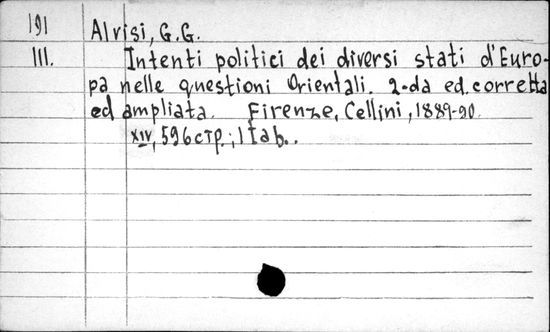 191 Alvisi, G.G.
III. Intenti politici dei diversi stati d'Euro-
pa nelle questioni Orientali. 2-da ed. corretta
ed ampliata. Firenze, Cellini, 1889-90.
XIV, 596 стр.; 1 tab..